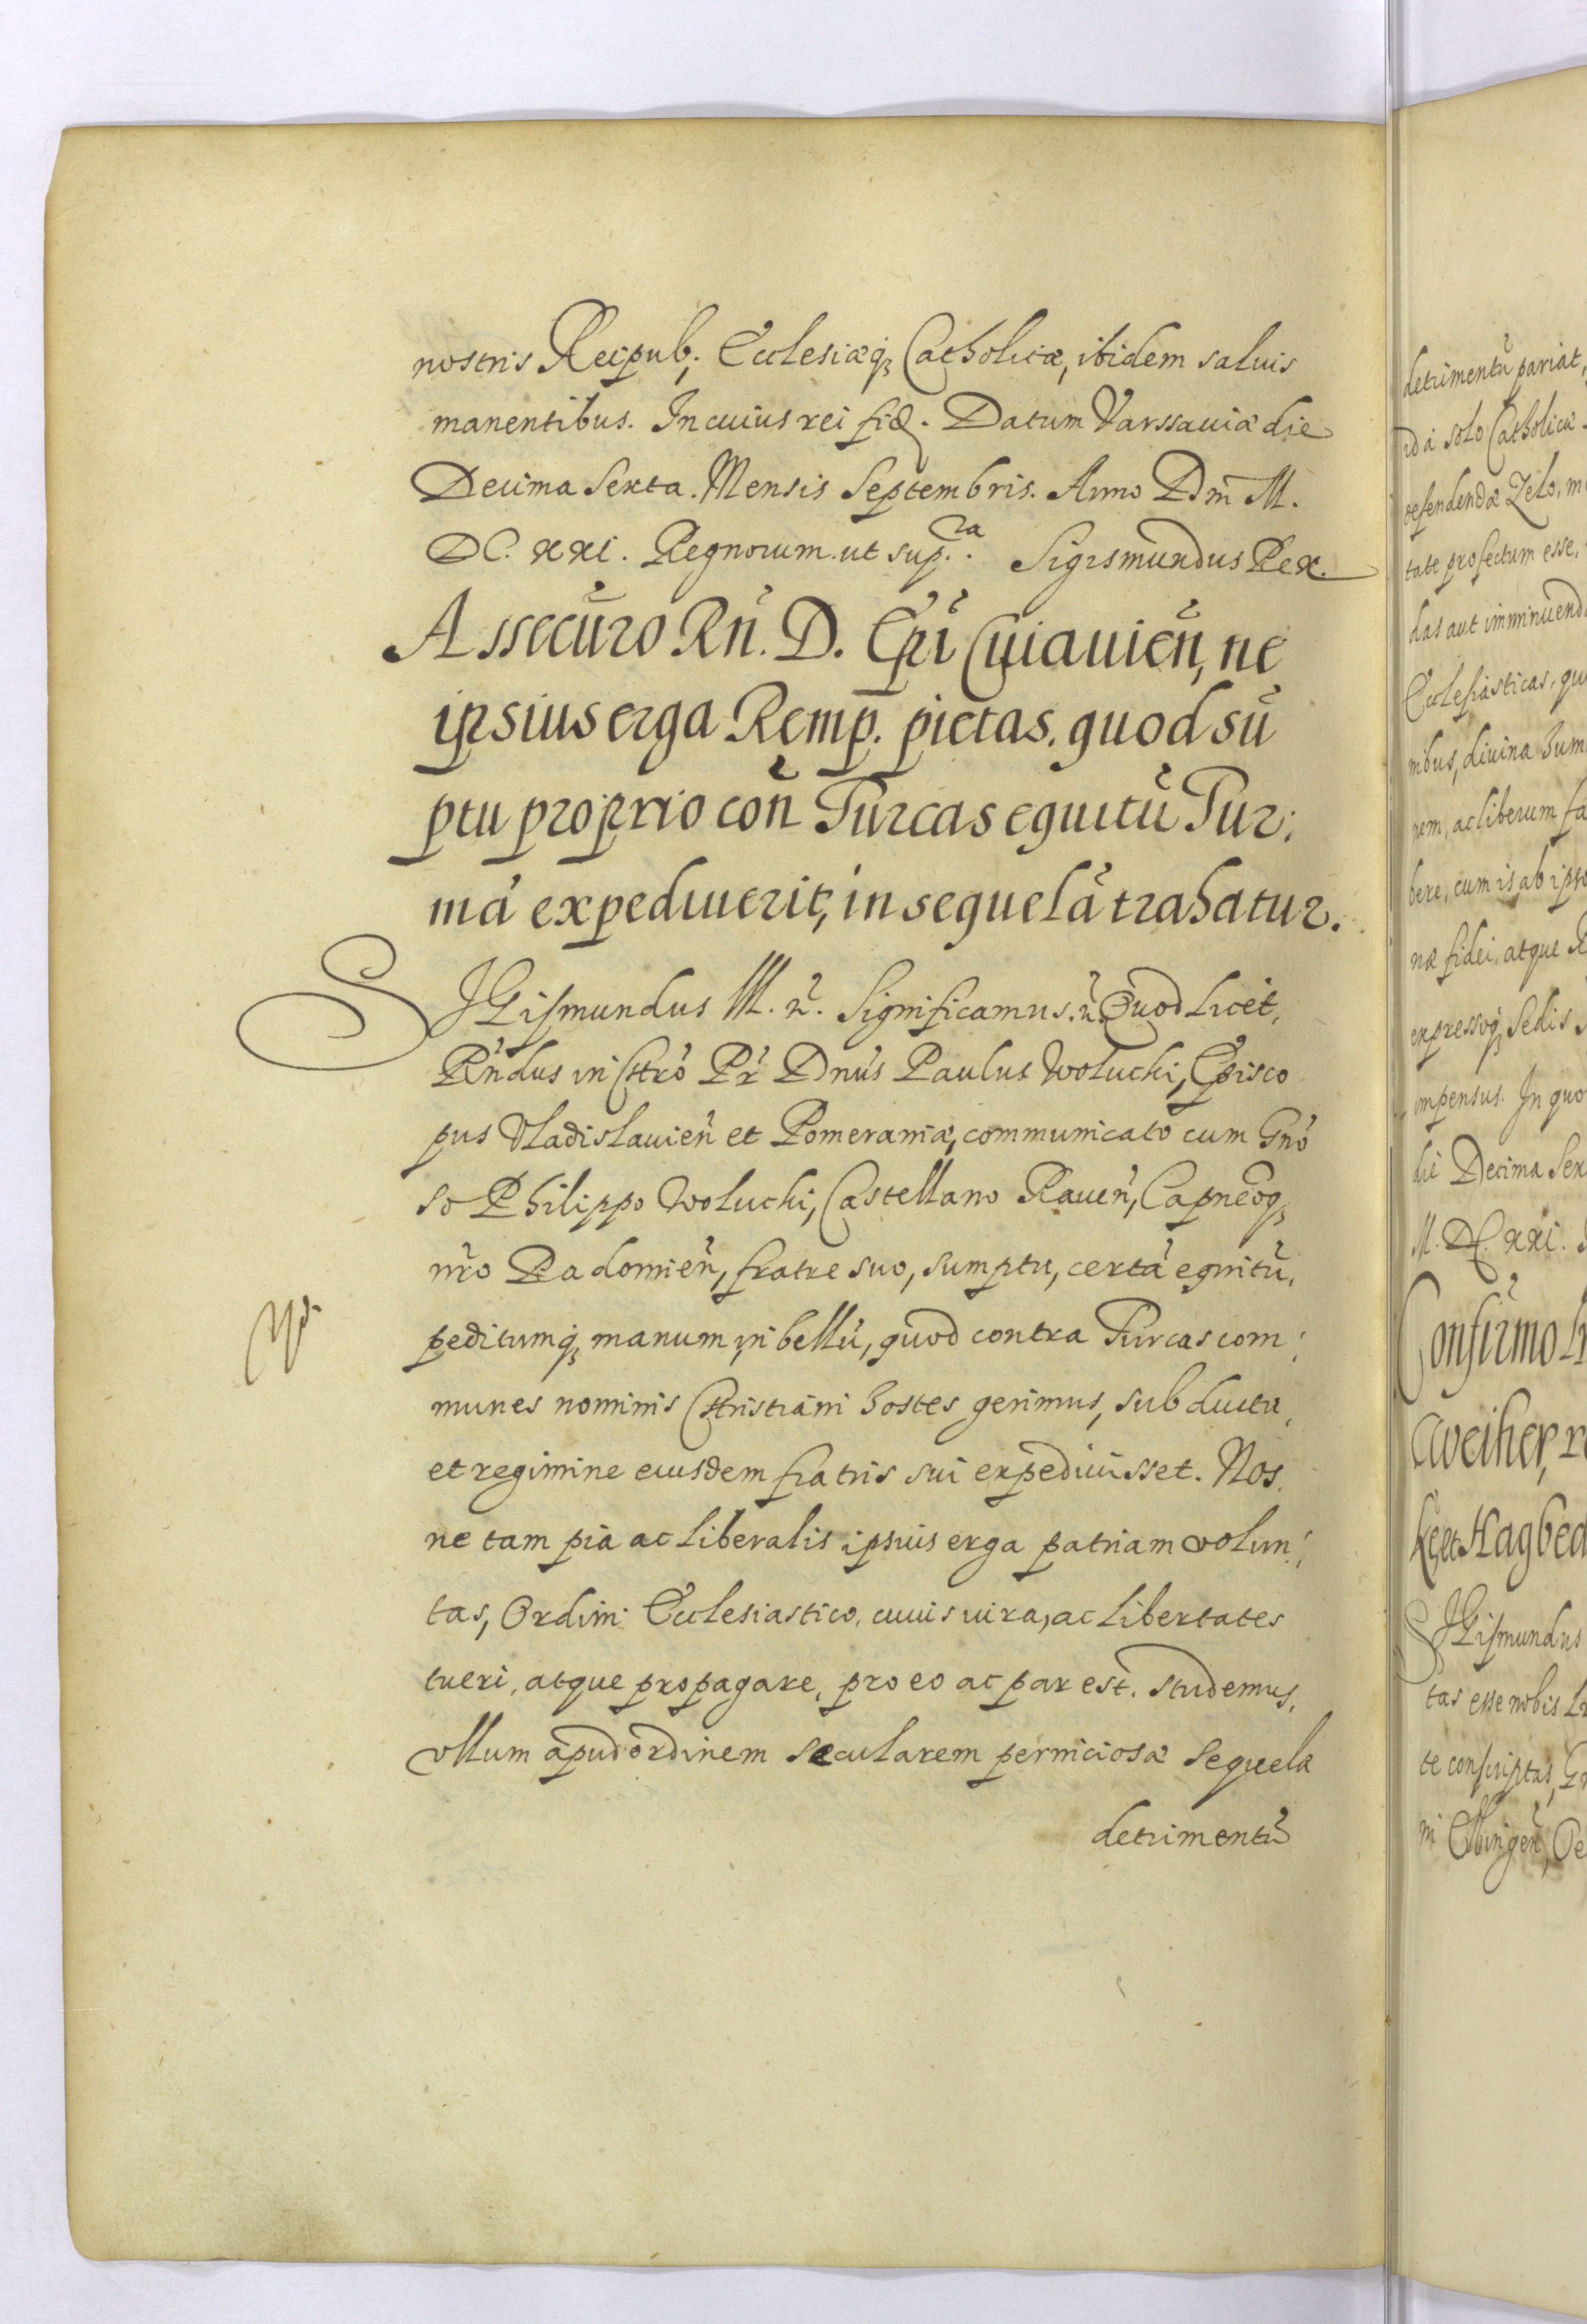 nostris Reipub; Ecclesiæq; Catholicæ, ibidem saluis
manentibus. In cuius rei fid. Datum Varssauiæ die
Decima Sexta. Mensis Septembris. Anno Dñi M.
DC. XXI. Regnorum ut sup.ra Sigismundus Rex.
Assecuro Rñ. D. Epi Cuiauieñ, ne
ipsius erga Remp. pietas. quod sũ
ptu proprio coñ Turcas equitũ Tur:
má expediuerit, in sequelã trahatur.
SIGismundus III. ñ. Significamus. ñ. Quod licet,
Rñdus in Chrõ Pr̃ Dnũs Paulus Woluchi, Episco
pus Vladislauieñ et Pomeraniæ, communicato cum Gnõ
so Philippo Woluchi, Castellano Raueñ, Capneõq;
nr̃o Radomieñ, fratre suo, sumptu, certá equitũ,
peditumq; manum, in bellũ, quod contra Turcas com:
munes nominis Christiani hostes gerimus, sub ductu,
et regimine eiusdem fratris sui expediuisset. Nos,
ne tam pia ac liberalis ipsius erga patriam volun:
tas, Ordini Ecclesiastico, cuius iura, ac libertates
tueri, atque propagare, pro eo ac par est. studemus,
vllum apud ordinem secularem perniciosæ sequelæ
detrimentũ
detrimentũ pariat,
id á solo Catholicæ
defendendæ Zelo,
tate profectum esse,
das aut imminuend
Ecclesiasticas, qu
nibus, diuina hum
nem, ac liberum fa
bere, cum is ab ipso
næ fidei, atque R
expressoq; Sedis
impensus. In quo
die Decima Sex
M. DC. XXI. S
Confirmo
Weiher, r
et Hagbed
SIGismundus
tas esse nobis
te conscriptas, G
ni